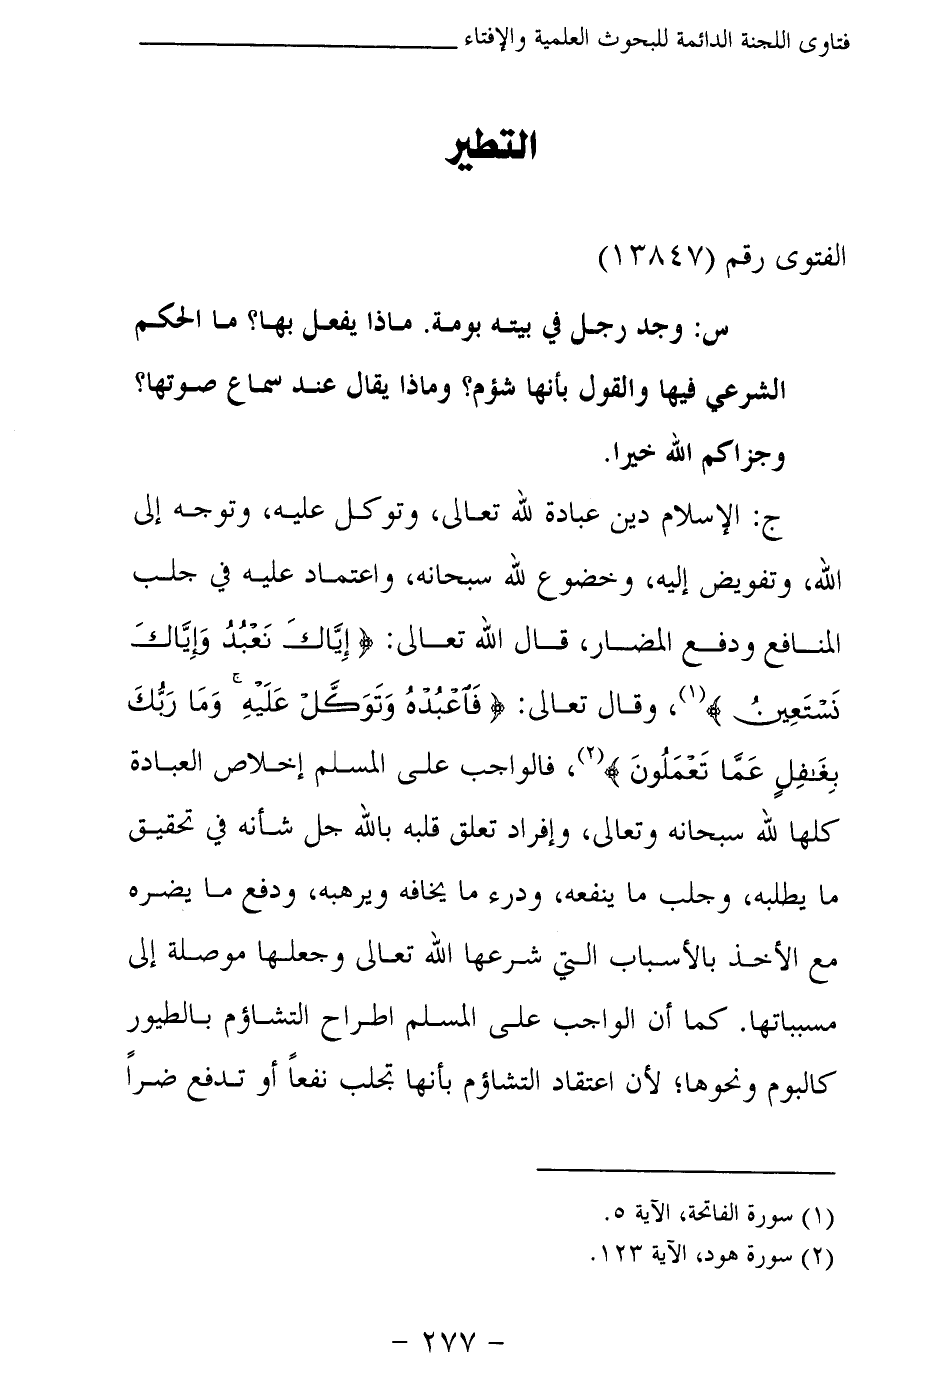 فتاوى اللجنة الدائمة للبحوث العلمية والإفتاء
التطير
الفتوى رقم (١٣٨٤٧)
س: وجد رجل في بيته بومة. ماذا يفعل بها؟ ما الحكم
الشرعي فيها والقول بأنها شؤم؟ وماذا يقال عند سماع صوتها؟
وجزاكم الله خيرا.
ج: الإسلام دين عبادة لله تعالى، وتوكل عليه، وتوجه إلى
الله، وتفويض إليه، وخضوع لله سبحانه، واعتماد عليه في جلب
المنافع ودفع المضار، قال الله تعالى: ﴿ إِيَّاكَ نَعْبُدُ وَإِيَّاكَ
نَسْتَعِينُ ﴾(١)، وقال تعالى: ﴿ فَٱعْبُدْهُ وَتَوَكَّلْ عَلَيْهِ ۚ وَمَا رَبُّكَ
بِغَٰفِلٍ عَمَّا تَعْمَلُونَ ﴾(٢)، فالواجب على المسلم إخلاص العبادة
كلها لله سبحانه وتعالى، وإفراد تعلق قلبه بالله جل شأنه في تحقيق
ما يطلبه، وجلب ما ينفعه، ودرء ما يخافه ويرهبه، ودفع ما يضره
مع الأخذ بالأسباب التي شرعها الله تعالى وجعلها موصلة إلى
مسبباتها. كما أن الواجب على المسلم اطراح التشاؤم بالطيور
كالبوم ونحوها؛ لأن اعتقاد التشاؤم بأنها تجلب نفعاً أو تدفع ضراً
(١) سورة الفاتحة، الآية ٥.
(٢) سورة هود، الآية ١٢٣.
- ٢٧٧ -